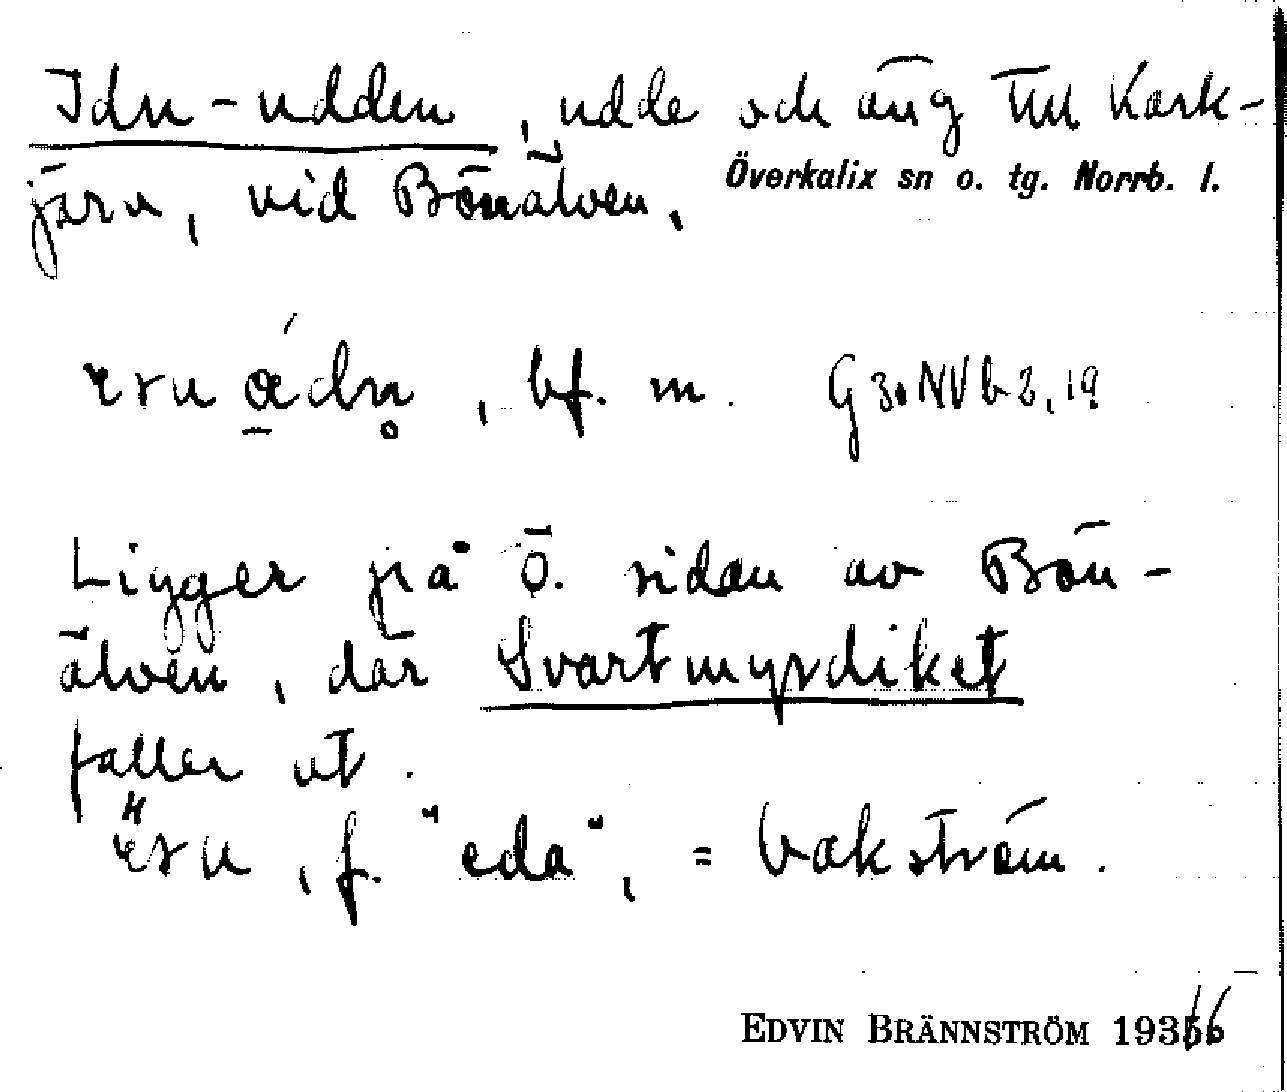 Idn-udden, udde och äng till Kark-
järv, vid Bönälven.
Överkalix sn o. tg. Norrb. l.
bf. m.
Ligger på ö. sidan av Bön-
älven, där Svartmyrdiket
faller ut.
f. "eda", = bakström.
EDVIN BRÄNNSTRÖM 193